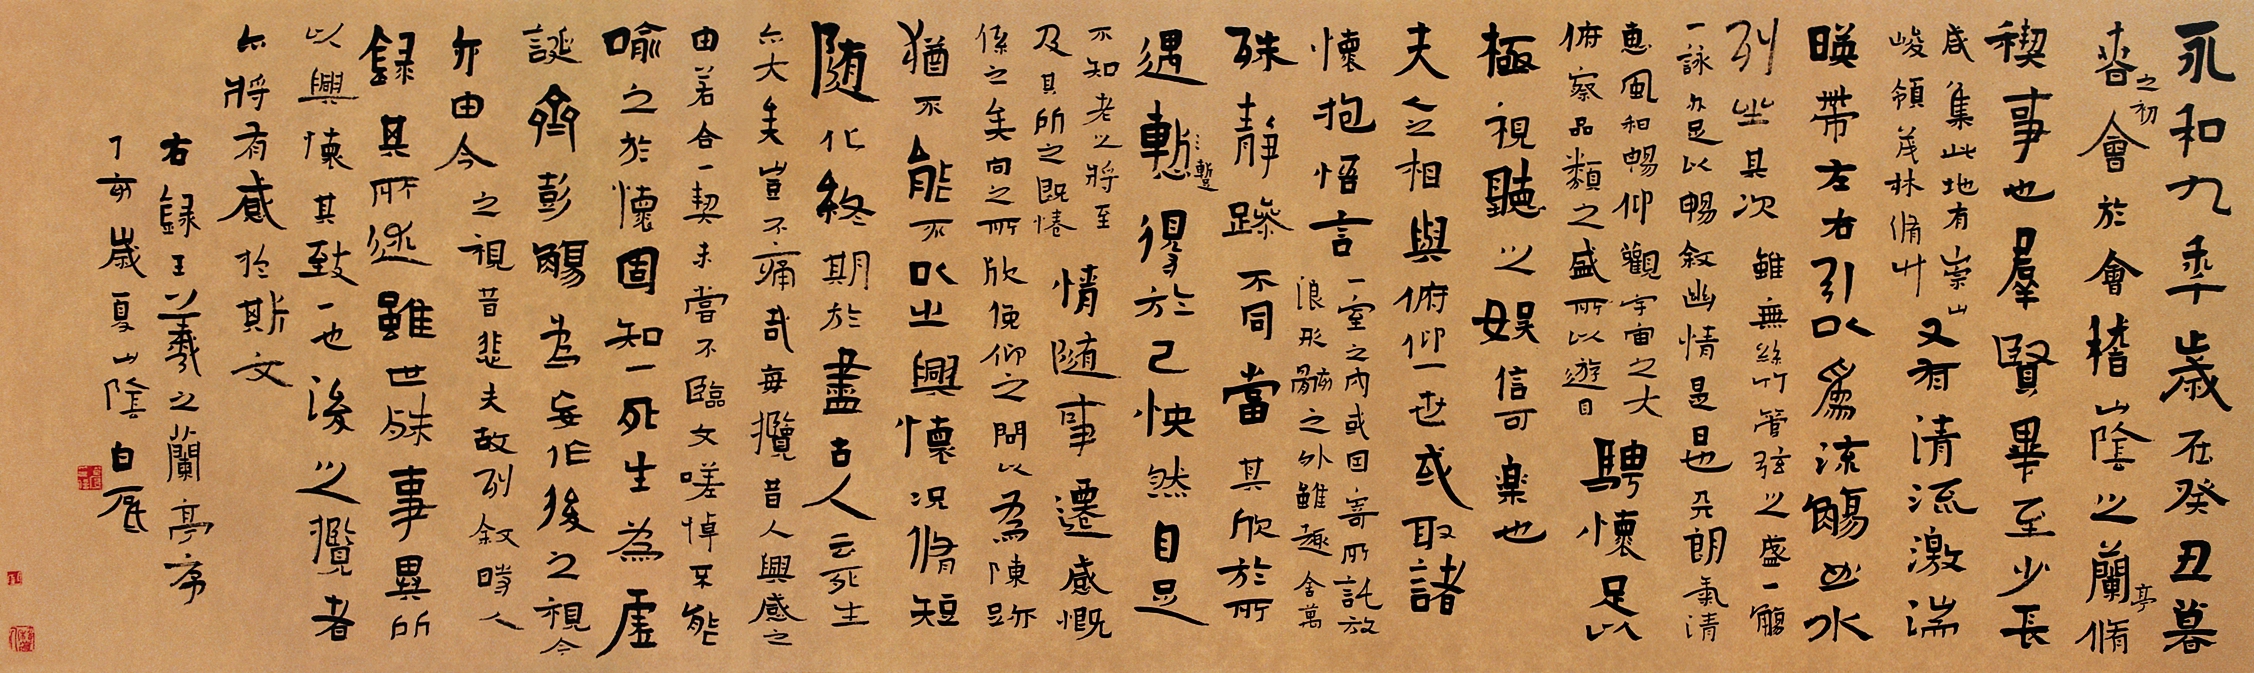 永和九年歲在癸丑暮
春之初會於會稽山陰之蘭亭脩
禊事也羣賢畢至少長
咸集此地有崇山
峻領茂林脩竹
又有清流激湍
暎帶左右引以為流觴曲水
列坐其次雖無絲竹管弦之盛一觴
一詠亦足以暢敘幽情是日也天朗氣清
惠風和暢仰觀宇宙之大
俯察品類之盛所以遊目
騁懷足以
極視聽之娛信可樂也
夫人之相與俯仰一世或取諸
懷抱悟言
一室之內或因寄所託放
浪形骸之外雖趣舍萬
殊靜躁不同當其欣於所
遇慙暫得於己怏然自足
不知老之將至
及其所之既惓
情隨事遷感慨
係之矣向之所欣俛仰之間以為陳跡
猶不能不以之興懷況脩短
隨化終期於盡古人云死生
亦大矣豈不痛哉每攬昔人興感之
由若合一契未嘗不臨文嗟悼不能
喻之於懷固知一死生為虛
誕齊彭殤為妄作後之視今
亦由今之視昔悲夫故列敘時人
錄其所述雖世殊事異所
以興懷其致一也後之攬者
亦將有感於斯文
右錄王羲之蘭亭序
丁亥歲夏山陰白厎